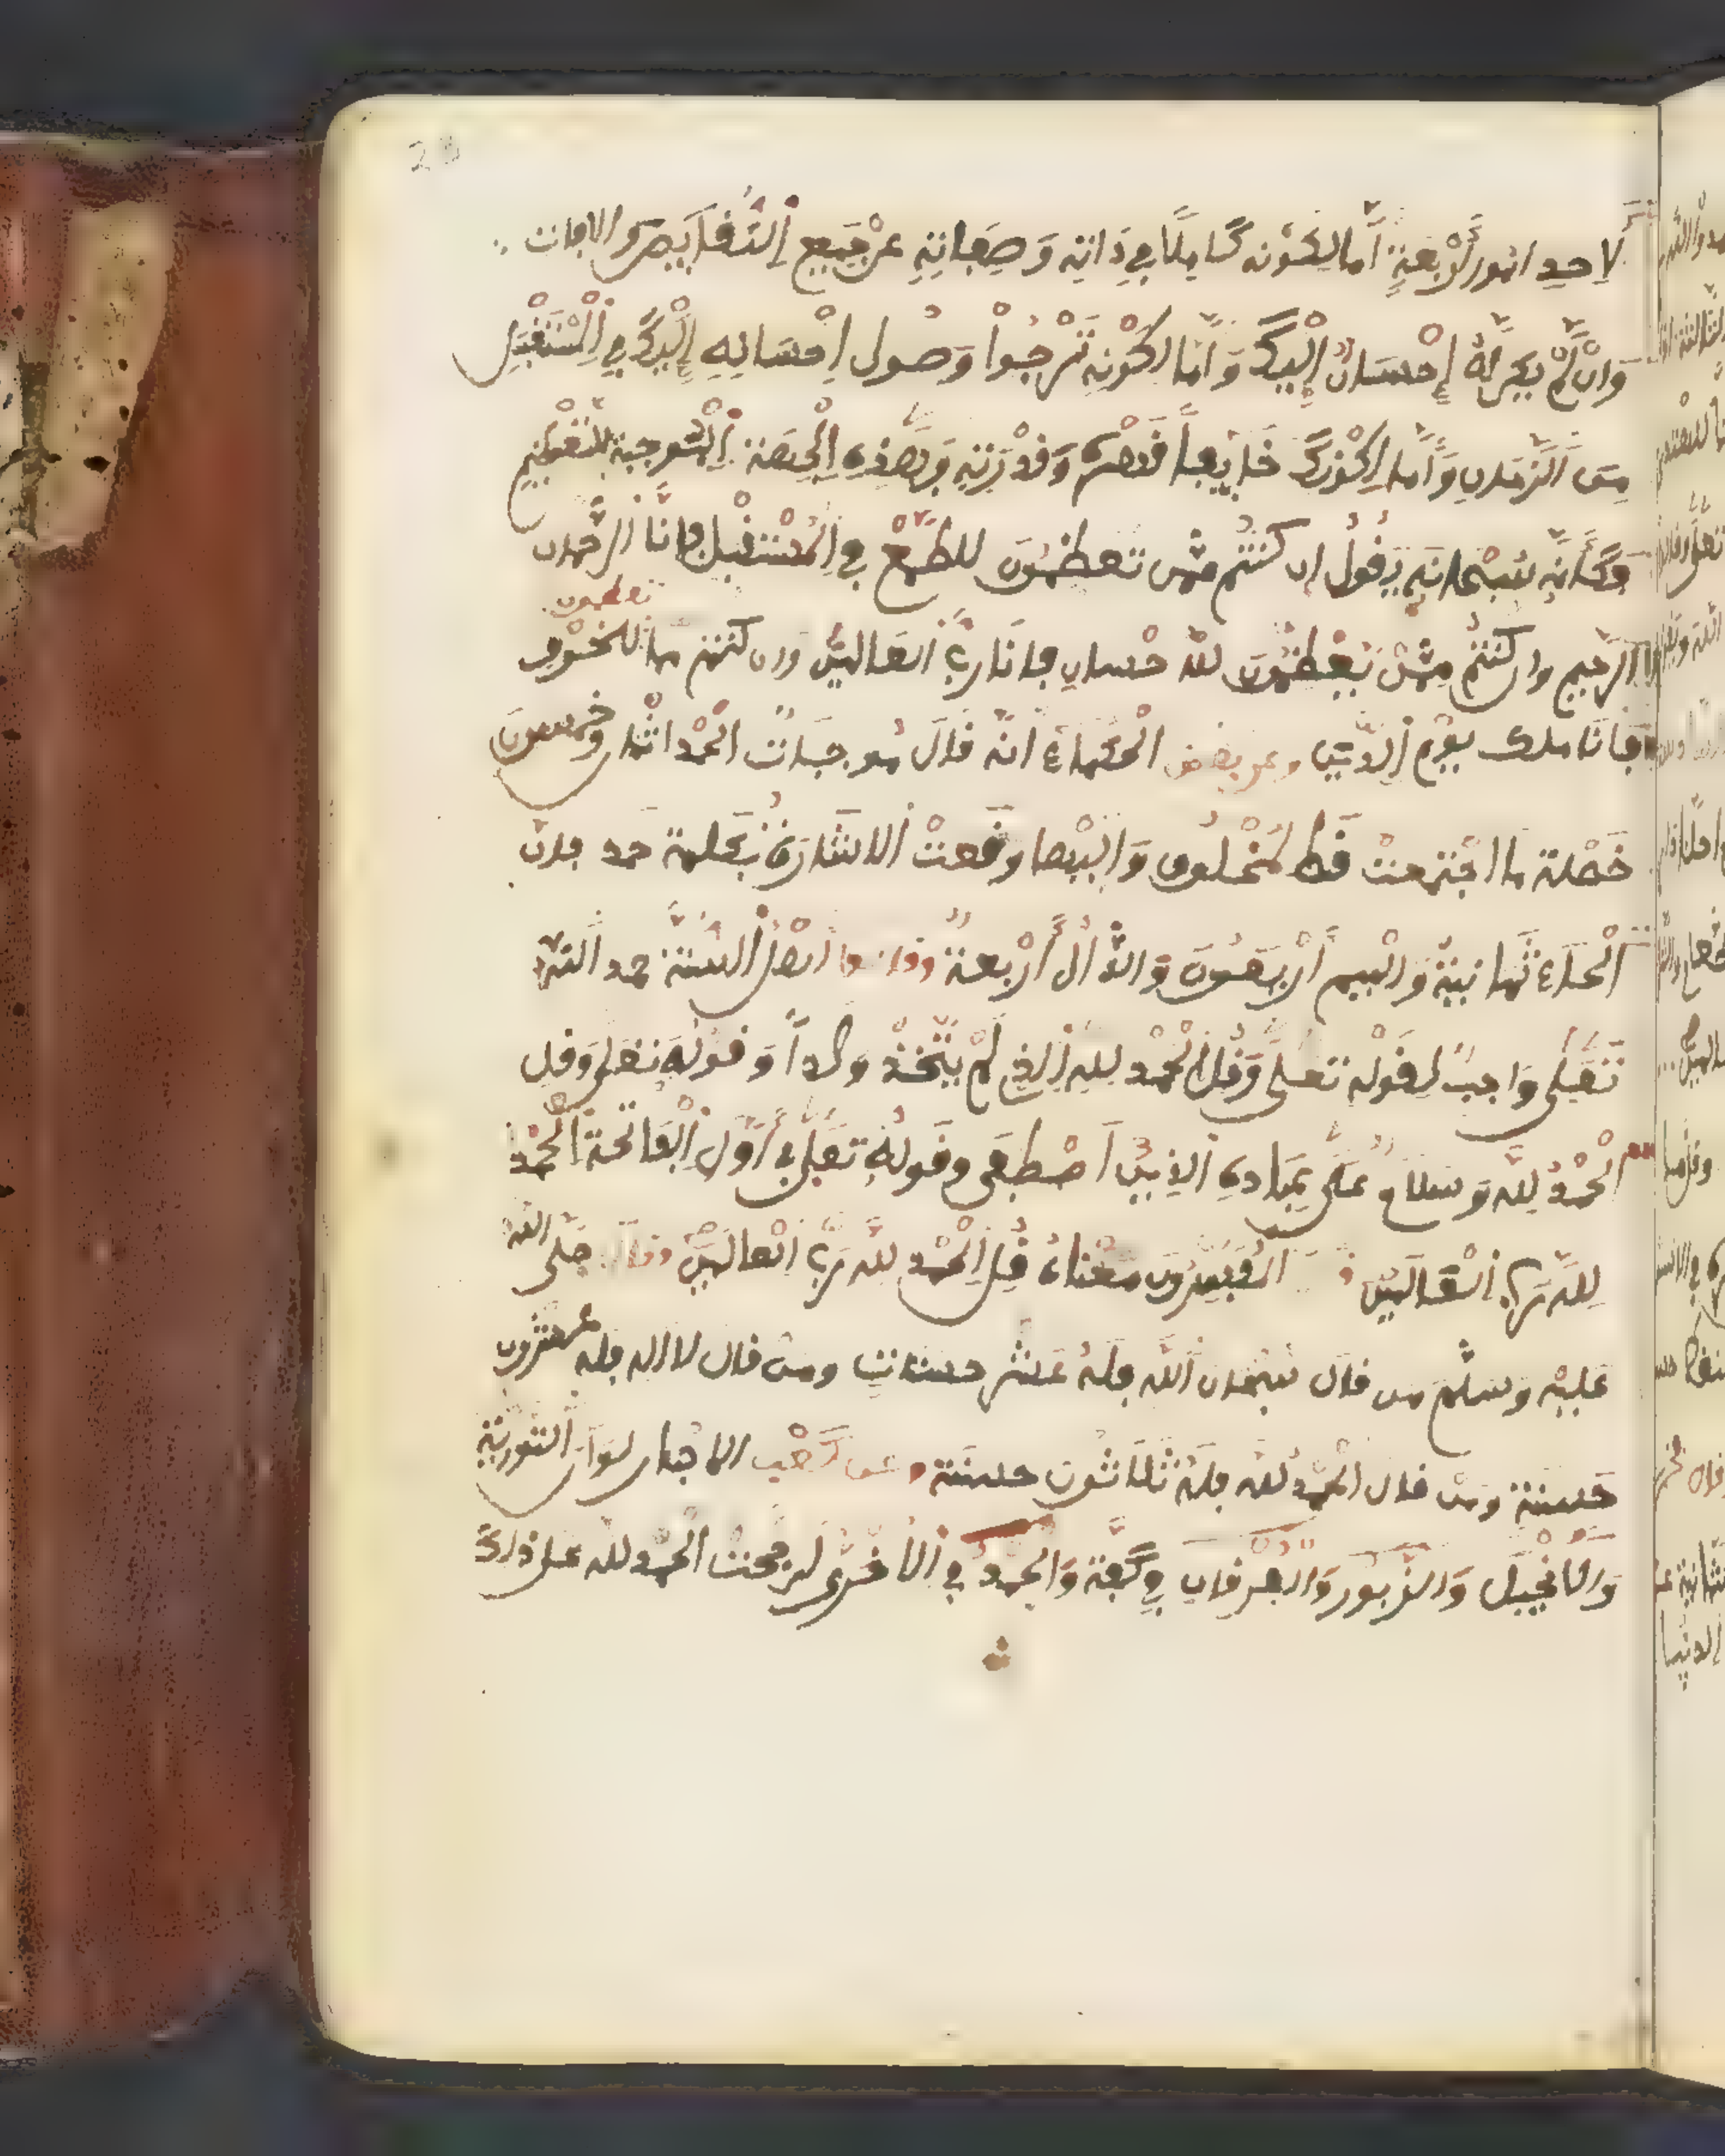 لِاَحدِ امُور أَرْبعَةٍ أمّا لِكَوْنه كَامِلًا في ذَاتِهِ وَصِفَاتِهِ عَنْ جَمِيعِ اِلنَّقَآيِصِ والافات
وَاِنْ لّمْ يَكن لهُ إِحْسَانٌ إِلَيْكَ وَأمّا لِكَوْنِهِ تَرْجُواْ وَصُول اِحْسَانِهِ إِلَيْكَ فِي اِلْمُسْتَقْبَلِ
مِنَ اَلزّمَانِ وَأمّا لِكَوْنِكَ خَآيِفاً قَهْره وَقدْرَتِهِ وَهَذِهِ اِلْجِهَة اِلْمُوجِبة للتعْظِيمِ
وَكَأَنّهِ سُبْحَانَهِ يَقُولُ اِن كُنْتُمْ مِمَّن تعظمُونَ لِلطَّمَعْ فِي اِلْمُسْتقْبِل فَانَّا اَلرّحمان
تعظمون
اَلرّحِيم وان كُنْتُمْ مِمّنْ تُعَظِّمُونَ للاحْسان فانَا رَبُّ اَلعَالمِينَ وان كنتم مما للخَوْف
فَانَا ملك يوْمِ اِلدّينِ وعن بعض الْحُكَمَاءِ انّه قَالَ مُوجبَاتُ الْحَمْد اثْنا وخمسون
خَصْلة ما اجْتمعتْ قَط لِمَخْلُوق وَاليْها وقَعتْ اَلاشَارَةُ بِكَلمة حمد فان
اَلْحَاءَ ثَمانِيَةٌ وَالْمِيم أَرْبَعُونَ وَالدَّال أَرْبعةٌ وقال اهْلُ السُّنّة حمد اَللّه
تَعَلى وَاجِبٌ لِقَوْلِه تعلى وَقُلِ اِلْحَمْد لِلهِ اِلذِي لَمْ يَتَّخِذْ وَلَداً وَقَوْلِهِ تعَلى وَقل
اَلْحَمْدُ لِلّه وَسَلَامٌ عَلَى عِبَادِهِ اِلذِينَ اَصْطَفَى وقَولِهِ تعَلى في أَوّلِ اِلْفَاتحة اَلْحَمْدُ
لِلّه رَبِّ اِلْعَالَمِينَ المُفَسِّرُونَ مَعْنَاهُ قُلِ اِلْحَمْد لِلّه رَبِّ اِلْعَالَمِينَ وقال صَلى اللّه
عَليْهِ وَسَلّمَ مَن قَالَ سُبْحَانَ اَللّه فَلَهُ عَشْر حَسنَات ومن قال لا اله فله عشرون
حَسنَة وَمَنْ قال اَلْحَمْد للّه فَلَهُ ثَلَاثُونَ حسنَة وعن كَعْب الاحْبار لَوَانّ اَلتّوْرِيةِ
وَالْاِنْجِيلَ وَالزّبُور وَالْفرْقان في كَفّة وَالْحَمْد في اَلْاخْرى لَرَجَحَت الْحَمْد للّه على ذَلك